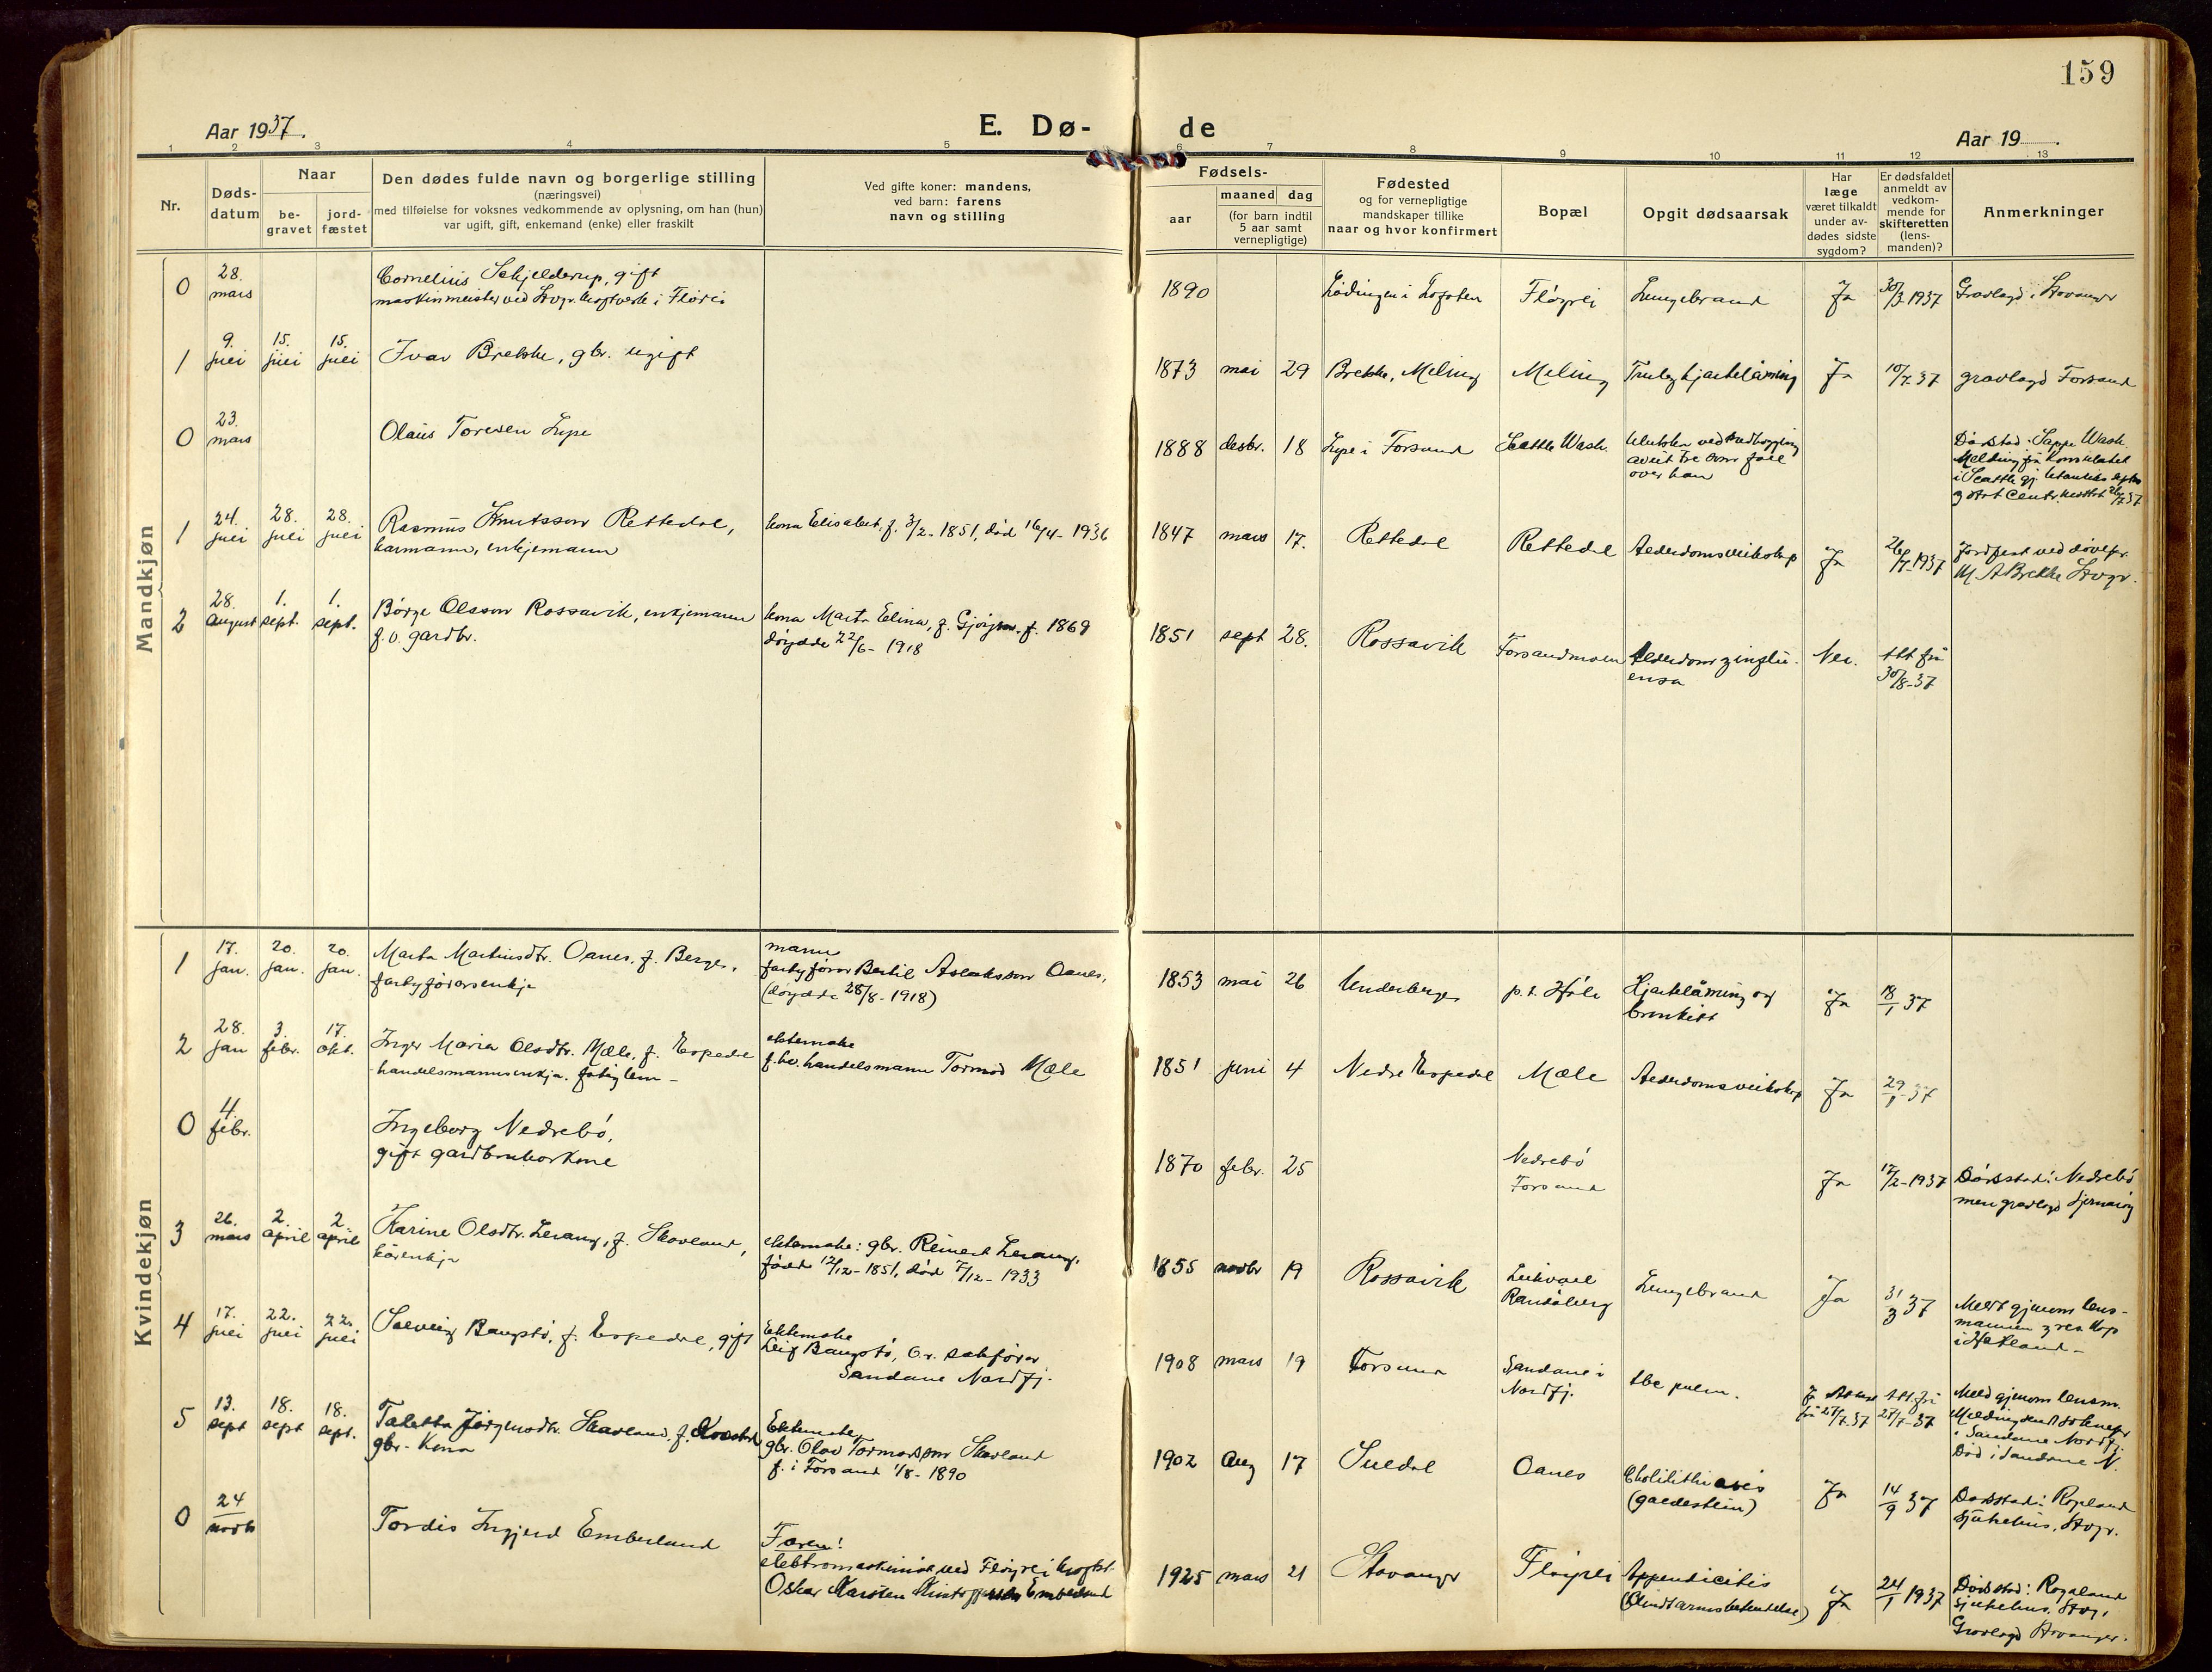 159
Aar 1937.
E. Dø-
de
Aar 19 .
1
2
3
4
5
6
7
8
9
10
11
12
13
Nr.
Døds-
datum
Naar
be-
gravet
jord-
fæstet
Den dødes fulde navn og borgerlige stilling
(næringsvei)
med tilføielse for voksnes vedkommende av oplysning, om han (hun)
var ugift, gift, enkemand (enke) eller fraskilt
Ved gifte koner: mandens,
ved barn: farens
navn og stilling
Fødsels-
aar
maaned
dag
(for barn indtil
5 aar samt
vernepligtige)
Fødested
og for vernepligtige
mandskaper tillike
naar og hvor konfirmert
Bopæl
Opgit dødsaarsak
Har
læge
været tilkaldt
under av-
dødes sidste
sygdom?
Er dødsfaldet
anmeldt av
vedkom-
mende for
skifteretten
(lens-
manden)?
Anmerkninger
Mandkjøn
0
28.
mars
Cornelius Schjelderup, gift
maskinmeister ved Stvgr. kraftverk i Flörli
1890
Lødingen i Lofoten
Flöyrli
Lungebrand
Ja
30/3 1937
Gravlagd i Stavanger
1
9.
juli
15.
juli
15.
juli
Ivar Brekke, gbr. ugift
1873
mai
29
Brekke, Meling
Meling
Truleg hjartelåming
Ja
10/7 37
gravlagd Forsand
0
23.
mars
Olaus Toresen Lype
1888
desbr.
18
Lype i Forsand
Seattle Wash.
Ulukka ved
aveit tre som fall
over han
Dödsstad: Sappe Wash.
Melding frå konsulatet
i Seattle gj.
1
24.
juli
28.
juli
28.
juli
Rasmus Knutsson Rettedal,
kårmann, enkjemann
kona Elisabet, f. 3/2-1851, död 16/4-1936
1847
mars
17.
Rettedal
Rettedal
Alderdomsveikskap
Ja
26/7-1937
Jordfest ved
M. A Brekke Stvgr.
2
28.
august
1.
sept.
1.
sept.
Börge Olsson Rossavik, enkjemann
f.v. gardbr.
kona Marta Elina, f. f. 1869
döydde 22/6-1918
1851
sept
28.
Rossavik
Forsandmoen
Alderdom influ-
ensa
Nei.
att frå
30/8-37
Kvindekjøn
1
17.
jan.
20.
jan.
20.
jan.
Marta Martinsdtr. Oanes, f. Berge,
fartyförarsenkje
mann
fartyförar Bertil Aslaksson Oanes,
(döydde 28/8-1918)
1853
mai
26
Underberge
p.t. Höle
Hjartelåming og
bronkitt
Ja
18/1 37
2
28.
jan
3.
febr.
17.
okt.
Inger Maria Olsdtr. Mæle, f. Espedal
handelsmannsenkja. fatiglem -
ektemake
f.hv. handelsmann Tormod Mæle
1851
juni
4
Nedre Espedal
Mæle
Alderdomsveikskap
Ja
29/1-37
0
4.
febr.
Ingeborg Nedrebö,
gift gardbrukarkone
1870
febr.
25
Nedrebö
Forsand
Ja
12/2-1937
Dödsstad: Nedrebö
men gravlagd Sjernaröy
3
26.
mars
2.
april
2
april
Karine Olsdtr. Lerang, f. Skavland,
kårenkje
ektemake: gbr. Reinert Lerang,
född 12/12-1851, död 7/12-1933
1855
novbr
19
Rossavik
Leikvoll
Randaberg
Lungebrand
Ja
31/3 37
Meldt gjenom lens-
mannen
i Hetland-
4
17.
juli
22.
juli
22.
juli
Solveig Baugstö, f. Espedal, gift
Ektemake
Leif Baugstö, O.r. sakförar,
Sandane Nordfj.
1908
mars
19
Forsand
Sandane i
Nordfj.
tbc pulm.
Ja Attest
frå 27/7.37
att frå
27/7-37
Meld gjenom lensm.
Melding sendt sokneprest
i Sandane Nordfj.
Död i Sandane N.
5
13.
sept
18.
sept
18.
sept.
Taletta Jörgensdtr. Skavland, f.
gbr.-Kona
Ektemake,
gbr. Olav Tormodsson Skavland
f. i Forsand 1/8-1890
1902
Aug
17
Suldal
Oanes
Cholelithiasis
(galdestein)
Ja
14/9 37
Dödsstad: Rogaland
Sjukehus, Stvgr.
0
24
novb
Tordis Ingjerd Emberland
Faren:
elektromaskinist ved Flöyrli kraftst.
Oskar Karsten Emberland
1925
mars
21
Stavanger
Flöyrli
Appendicitis
(Blindtarmsbetendelse)
Ja
24/1 1937
Dödsstad: Rogaland
Sjukehus, Stvgr.
Gravlagd Stavanger.